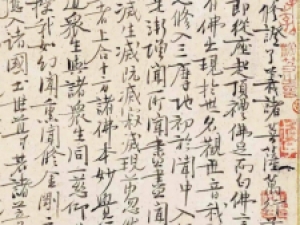 修證了義諸菩薩萬行
即從座起頂禮佛足而白佛言
有佛出現於世名觀世音我
修入三摩地初於聞中入
是漸增聞所聞盡盡聞
滅生滅既滅寂滅現前忽然
者上合十方諸佛本妙覺
道眾生與諸眾生同一悲仰
授我如幻聞熏聞修金剛三
應入諸國土世尊若諸菩